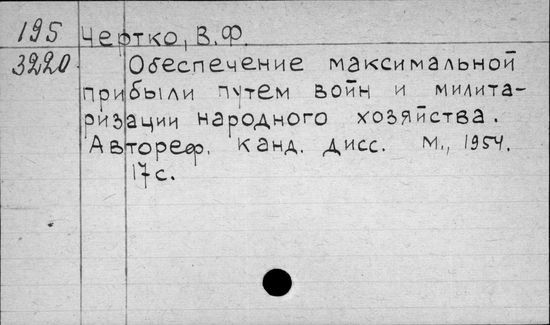 195 Чертко, В.Ф.
3220 Обеспечение максимальной
прибыли путем войн и милита-
ризации народного хозяйства.
Автореф. канд. дисс. М., 1954.
17с.